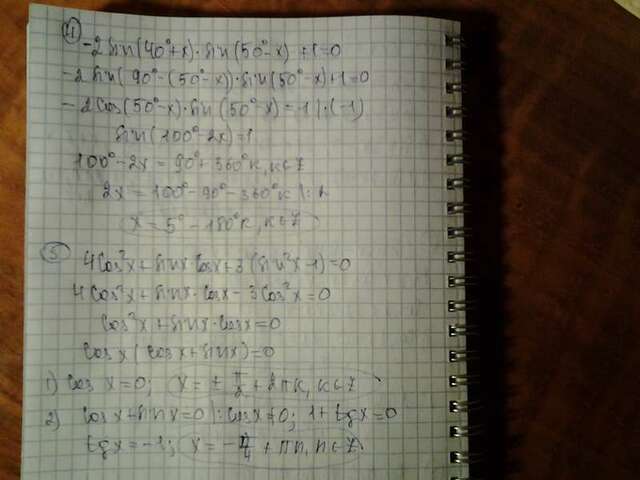 4)
-2sin(40°+x)·sin(50°-x)+1=0
-2sin(90°-(50°-x))·sin(50°-x)+1=0
-2cos(50°-x)·sin(50°-x)=-1 |·(-1)
sin(100°-2x)=1
100°-2x=90°+360°k, k∈Z
2x=100°-90°-360°k |:2
x=5°-180°k, k∈Z
5)
4cos²x+sinx·cosx+3(sin²x-1)=0
4cos²x+sinx·cosx-3cos²x=0
cos²x+sinx·cosx=0
cosx(cosx+sinx)=0
1) cosx=0; x=±π/2+2πk, k∈Z
2) cosx+sinx=0 |:cosx≠0; 1+tgx=0
tgx=-1; x=-π/4+πn, n∈Z